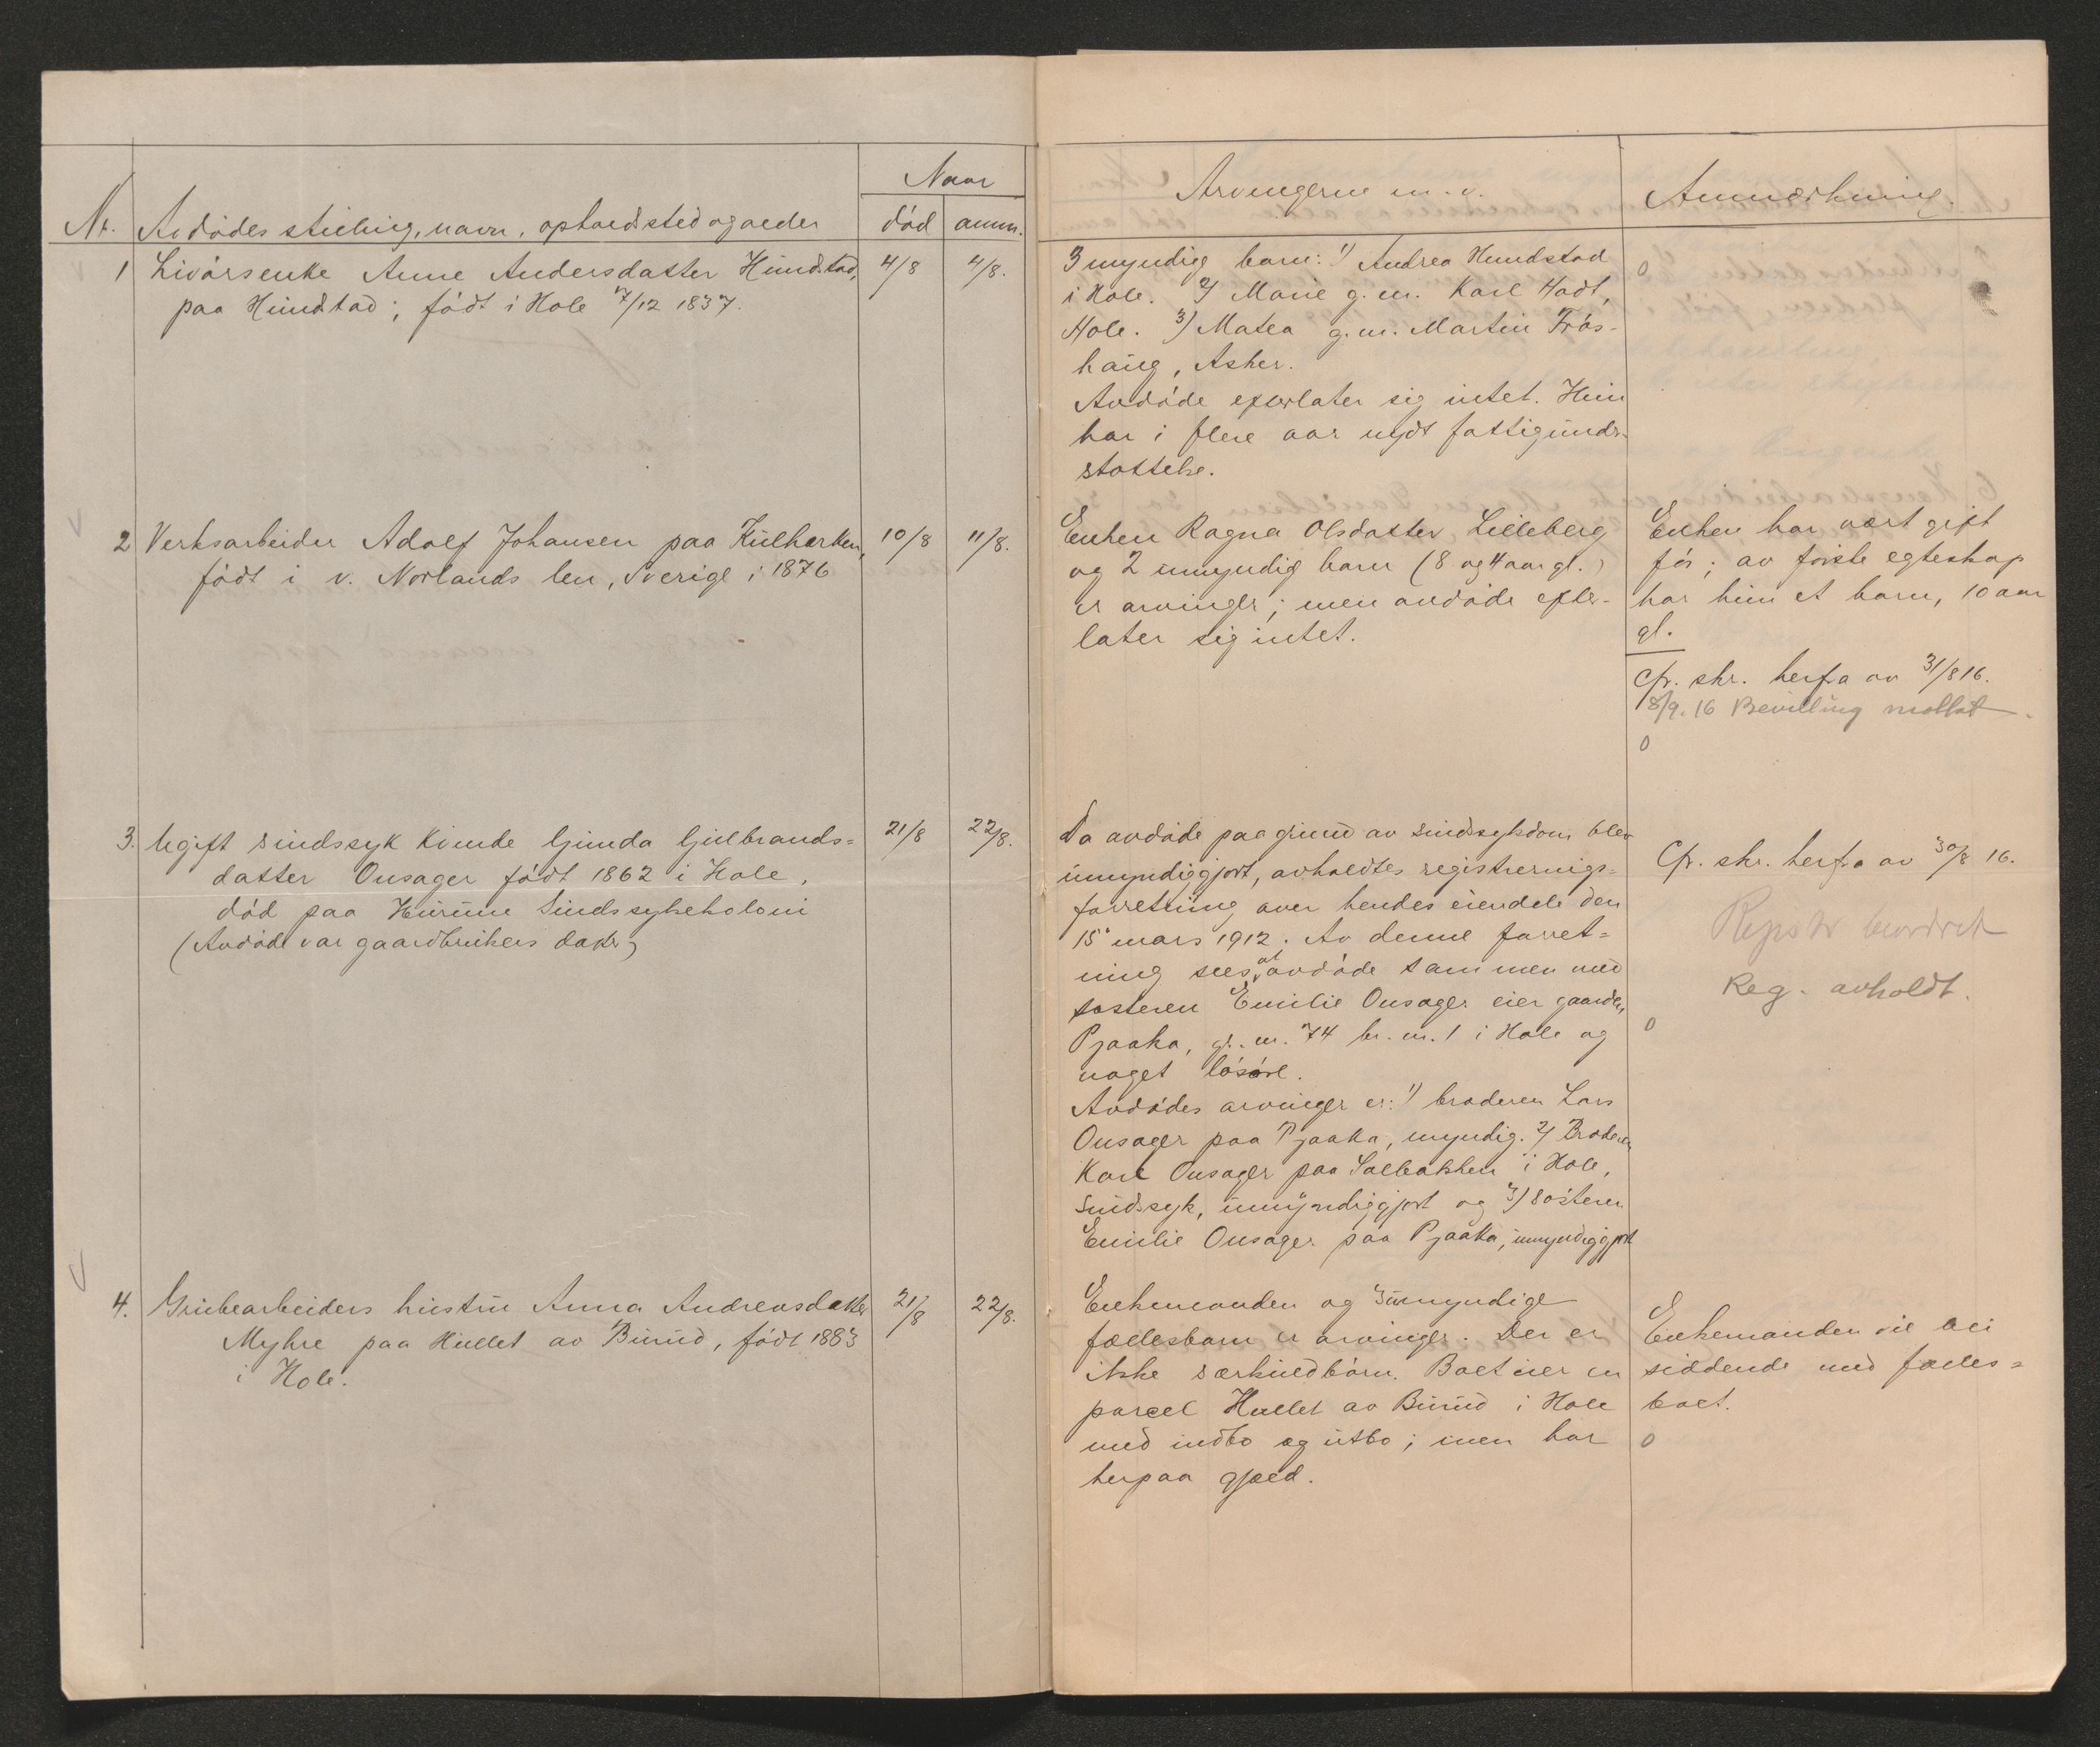 Naar
Nr. Avdødes stilling, navn, opholdssted og alder død anm.
Arvingerne m. v. Anmerkning.
1 Livørsenke Anne Andersdatter Hundstad, 4/8 4/8.
paa Hundstad; født i Hole 7/12 1837.
3 myndig barn: 1) Andrea Hundstad
i Hole. 2) Marie g. m. Karl
Hole. 3) Matea g. m. Martin Frøs-
haug, Asker.
Avdøde efterlater sig intet. Hun
har i flere aar nydt fattigunder-
støttelse.
0
2 Verksarbeider Adolf Johansen paa Kulhærken, 10/8 11/8.
født i v. Norlands len, Sverige i 1876
Enken Ragna Olsdatter Lilleberg
og 2 umyndig barn (8 og 4 aar gl.)
er arvinger; men avdøde efter-
later sig intet.
Enken har vært gift
før; av første egteskap
har hun et barn, 10 aar
gl.
Cfr. skr. herfra av 31/8 16.
8/9. 16 Bevilling mottat.
0
3. Ugift sindssyk kvinde Gunda Gulbrands=
datter Onsager født 1862 i Hole, 21/8 22/8.
død paa Hurum Sindssykekoloni
(Avdøde var gaardbrukers datter)
Da avdøde paa grund av sindssykdom blev
umyndiggjort, avholdtes registrerings=
forretning over hendes eiendele den
15' mars 1912. Av denne forret=
ning sees at avdøde sammen med
søsteren Emilie Onsager eier gaarden
Pjaaka, gr. nr. 74 br. nr. 1 i Hole og
noget løsøre.
Avdødes arvinger er: 1) broderen Lars
Onsager paa Pjaaka, myndig. 2) Broderen
Karl Onsager paa Solbakken i Hole,
Sindssyk, umyndiggjort og 3) Søsteren
Emilie Onsager paa Pjaaka, umyndiggjort
Cfr. skr. herfra av 30/8 16.
Reg. avholdt.
0
4. Grubearbeiders hustru Anna Andreasdatter 21/8 22/8.
Myhre paa Hullet av Burud, født 1883
i Hole.
Enkemanden og 3 umyndige
fællesbarn er arvinger. Der er
ikke særkuldbørn. Boet eier en
parcel Hullet av Burud i Hole
med indbo og utbo; men har
herpaa gjæld.
Enkemanden vil bli
siddende med fælles=
boet.
0